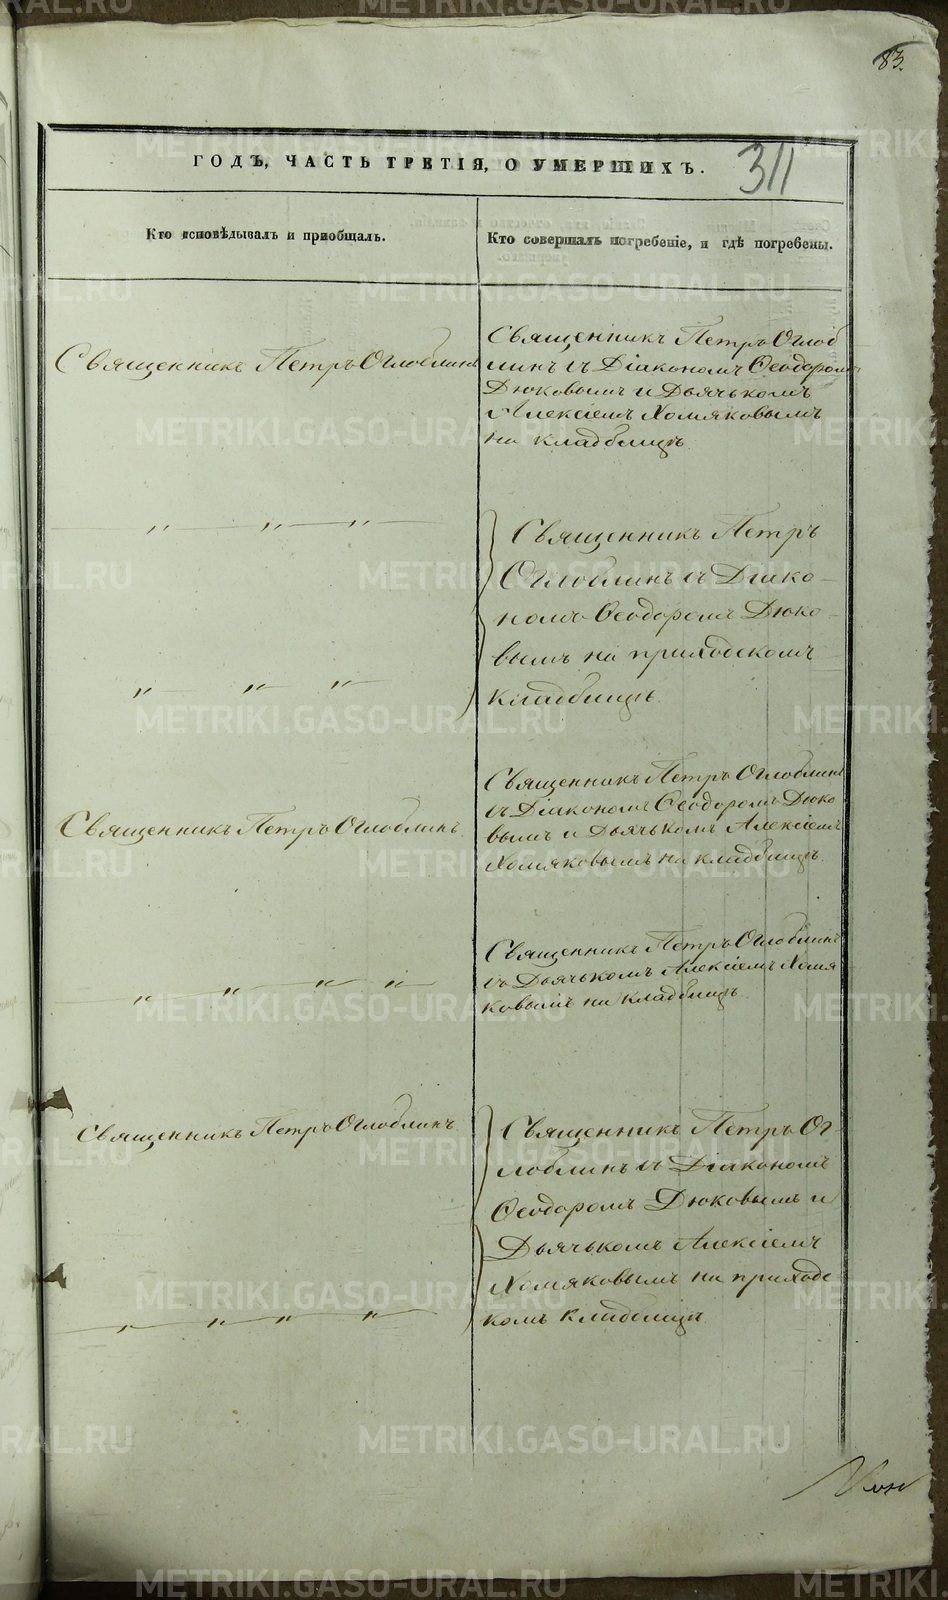 83.
ГОДЪ, ЧАСТЬ ТРЕТІЯ, О УМЕРШИХЪ.
311
Кто исповѣдывалъ и пріобщалъ.
Кто совершалъ погребеніе, и гдѣ погребены.
Священникъ Петръ Оглоблинъ
Священникъ Петръ Оглоб
линъ съ Діакономъ Ѳеодоромъ
Дюковымъ и Дьячькомъ
Алексіемъ Хомяковымъ
на кладбищѣ.
〃 〃 〃
Священникъ Петръ
Оглоблинъ съ Діако-
номъ Ѳеодоромъ Дюко-
вымъ на приходскомъ
кладбищѣ.
〃 〃 〃
Священникъ Петръ Оглоблинъ.
Священникъ Петръ Оглоблинъ
съ Діакономъ Ѳеодоромъ Дюко
вымъ и Дьячькомъ Алексіемъ
Хомяковымъ на кладбищѣ.
〃 〃 〃 〃
Священникъ Петръ Оглоблинъ
съ Дьячькомъ Алексіемъ Хомя
ковымъ на кладбищѣ.
Священникъ Петръ Оглоблинъ.
Священникъ Петръ Ог-
лоблинъ съ Діакономъ
Ѳеодоромъ Дюковымъ и
Дьячькомъ Алексіемъ
Хомяковымъ на приходс
комъ кладбищѣ.
〃 〃 〃 〃
METRIKI.GASO-URAL.RU